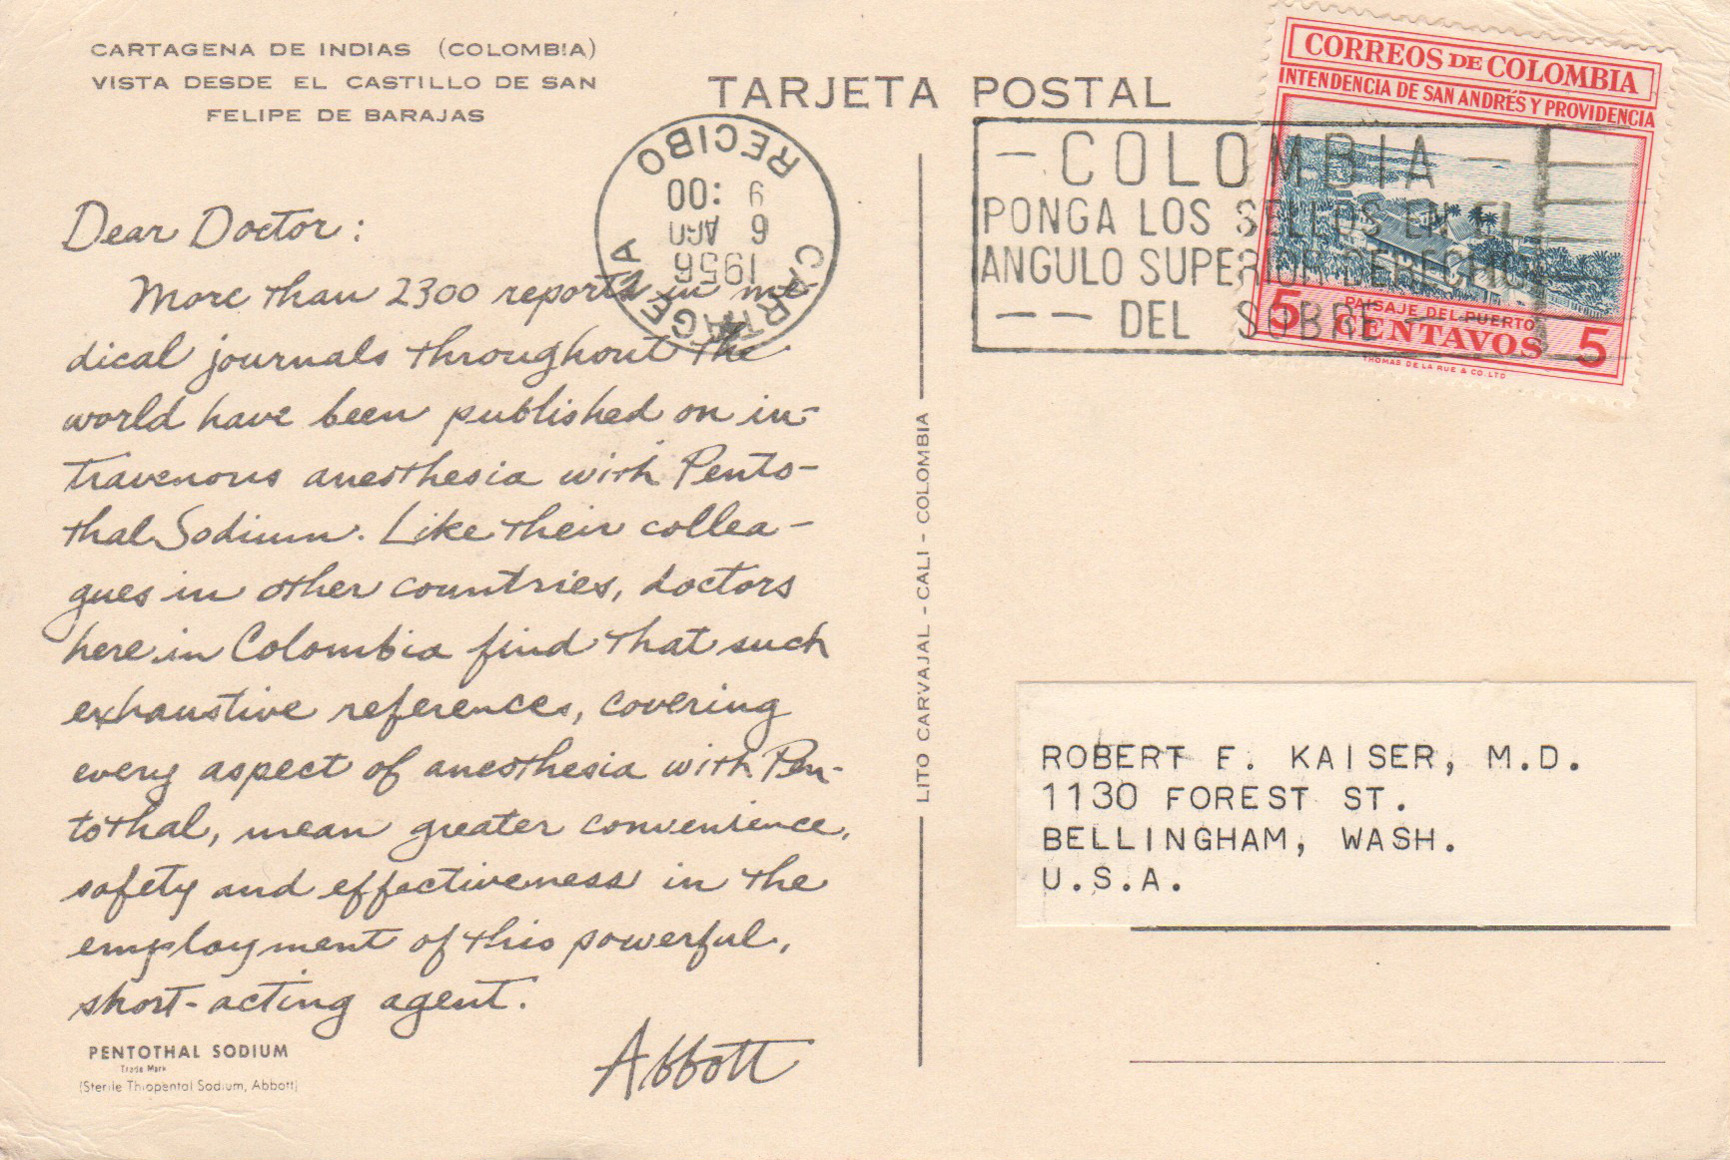 CARTAGENA DE INDIAS (COLOMBIA)
VISTA DESDE EL CASTILLO DE SAN
FELIPE DE BARAJAS
TARJETA POSTAL
Dear Doctor:
More than 2300 reports in me-
dical journals throughout the
world have been published on in-
travenous anesthesia with Pento-
thal Sodium. Like their collea-
gues in other countries, doctors
here in Colombia find that such
exhaustive references, covering
every aspect of anesthesia with Pen-
tothal, mean greater convenience,
safety and effectiveness in the
employment of this powerful,
short-acting agent.
Abbott
PENTOTHAL SODIUM
Trade Mark
(Sterile Thiopental Sodium, Abbott)
CARTAGENA
1956
6
9:00
RECIBO
LITO CARVAJAL - CALI - COLOMBIA
— COLOMBIA —
PONGA LOS SELLOS EN EL
ANGULO SUPERIOR DERECHO
—— DEL SOBRE
CORREOS DE COLOMBIA
INTENDENCIA DE SAN ANDRÉS Y PROVIDENCIA
PAISAJE DEL PUERTO
5 CENTAVOS 5
THOMAS DE LA RUE & CO. LTD
ROBERT F. KAISER, M.D.
1130 FOREST ST.
BELLINGHAM, WASH.
U.S.A.